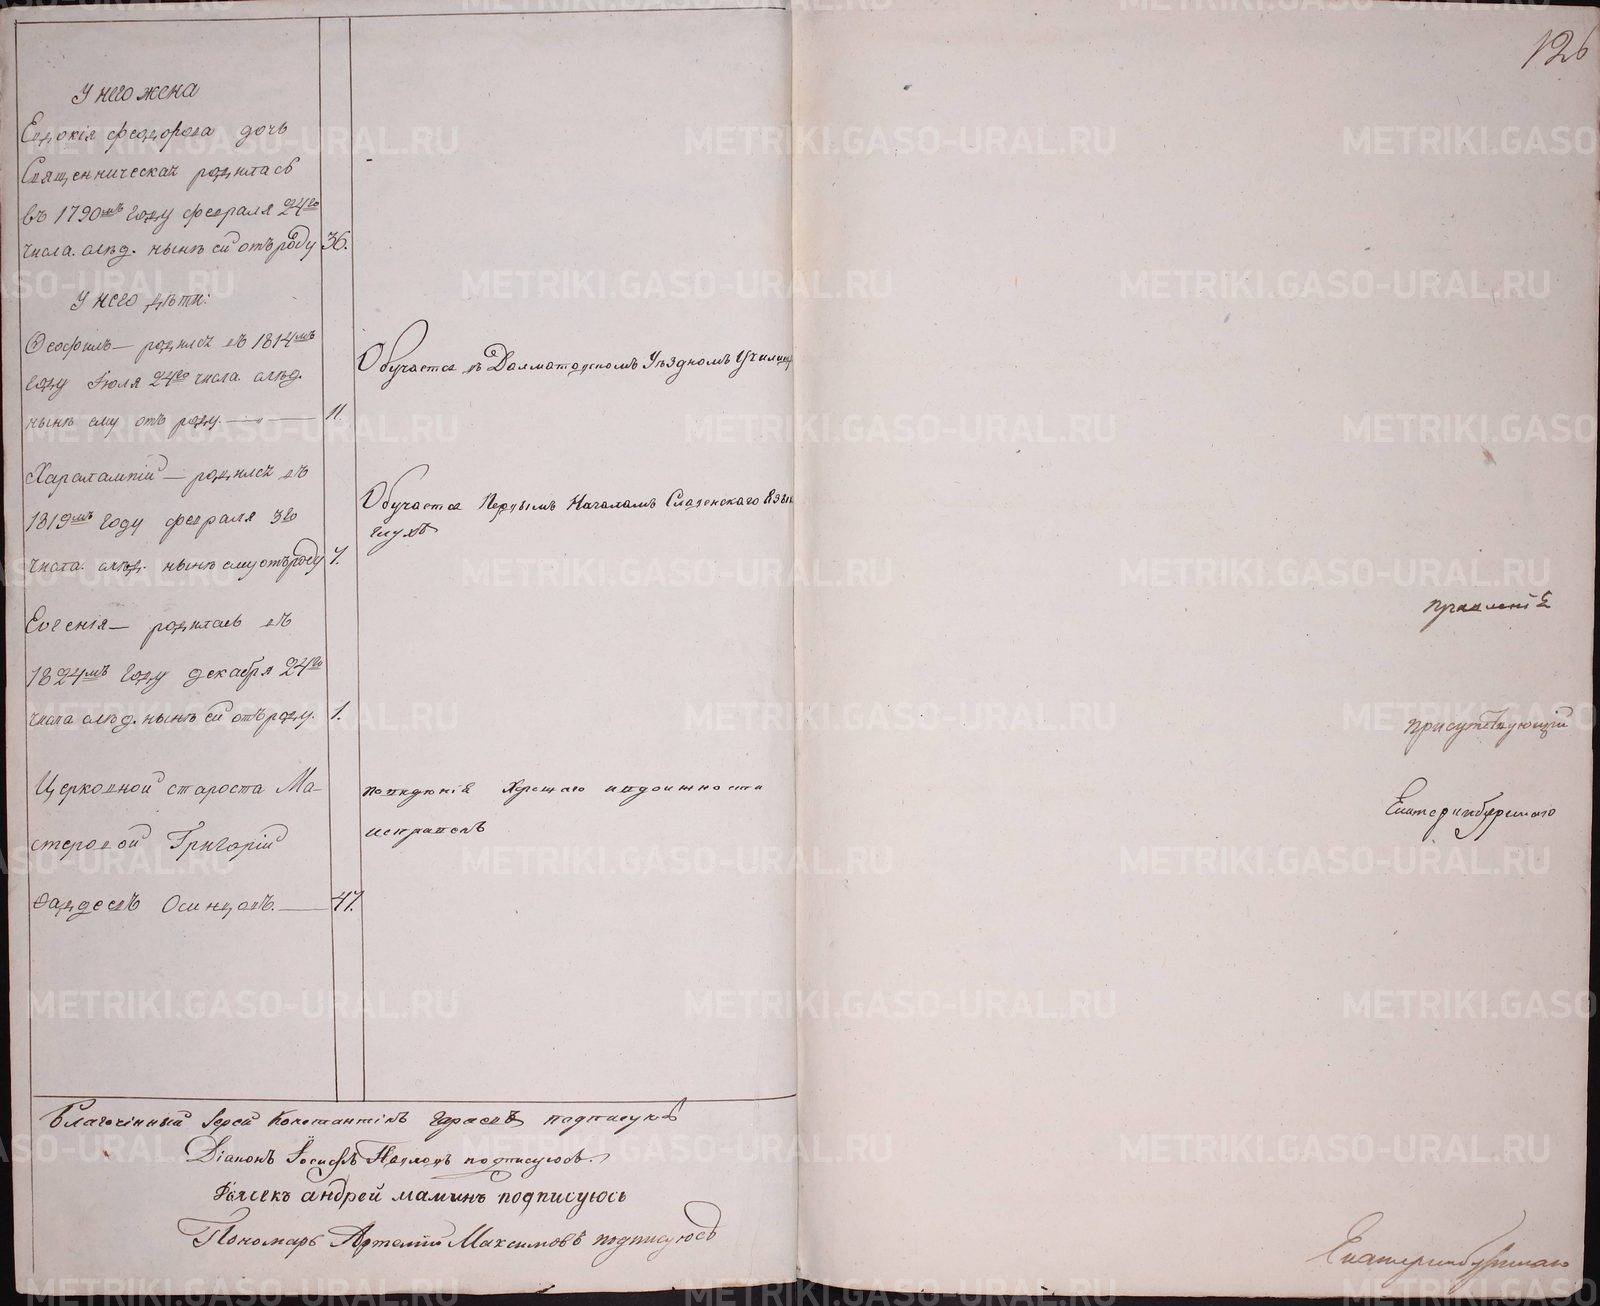 126
У него жена
Евдокія Феодорова дочь
Священническая родилась
въ 1790мъ году февраля 24го
числа. слѣд. нынѣ ей отъ роду 36.
У него дѣти:
Ѳеофилъ — родился въ 1814мъ
году Іюля 24го числа. слѣд.
нынѣ ему отъ роду. — 11.
Обучается въ Далматовскомъ Уѣздномъ Училищ
Харалампій — родился въ
1819мъ году февраля 3го
числа. слѣд. нынѣ ему отъ роду 7.
Обучается Первымъ Началамъ Славенскаго Язы
Евгенія — родилась въ
1824мъ году декабря 24го
числа слѣд. нынѣ ей отъ роду. 1.
Церковной староста Ма-
стеровой Григорій
Фаддеевъ Осинцовъ. — 47.
поведенія Хорошаго и въ должности
исправенъ
Благочинный Іерей Константінъ подписуюсь
Діаконъ Іосифъ Павловъ подписуюсь.
Дьячекъ андрей маминъ подписуюсь
Пономарь Артемій Максимовъ подписуюсь
правленіе
присутствующій
Екатеринбургскаго
Екатеринбургскаго
METRIKI.GASO-URAL.RU